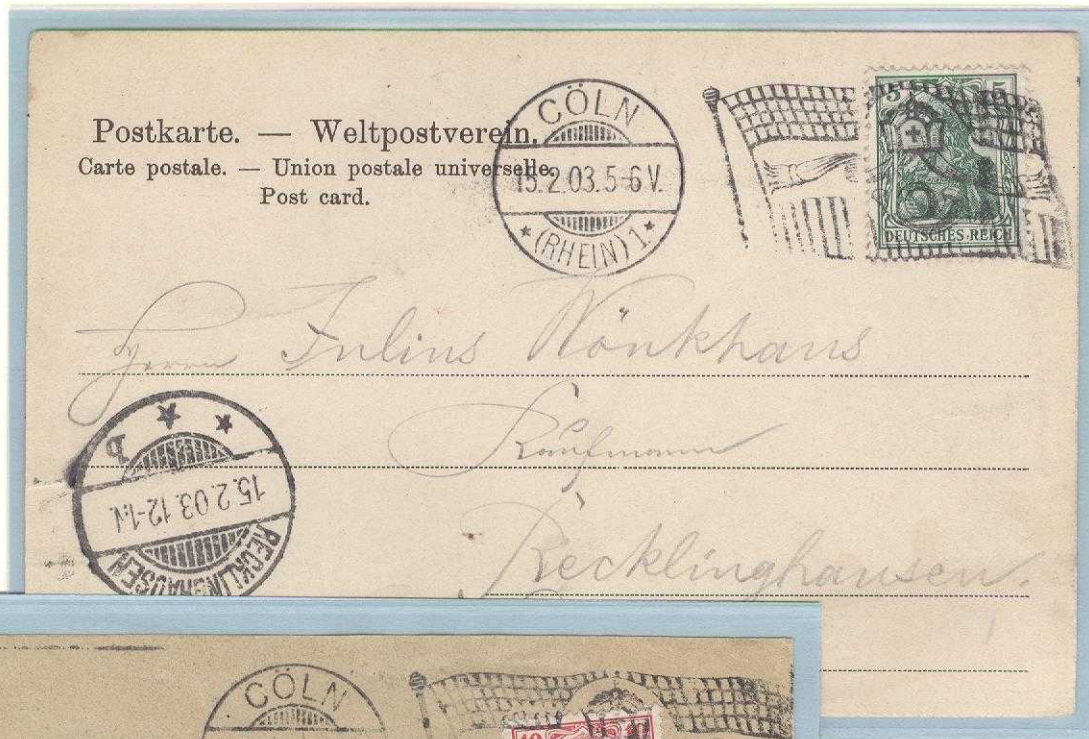 Postkarte. — Weltpostverein.
Carte postale. — Union postale universelle.
Post card.
CÖLN
15.2.03.5-6 V.
* (RHEIN) 1 *
5 5
DEUTSCHES REICH
Herrn Julius Wönkhaus
Kaufmann
Recklinghausen.
15.2.03.12-1.V.
RECKLINGHAUSEN
CÖLN
10